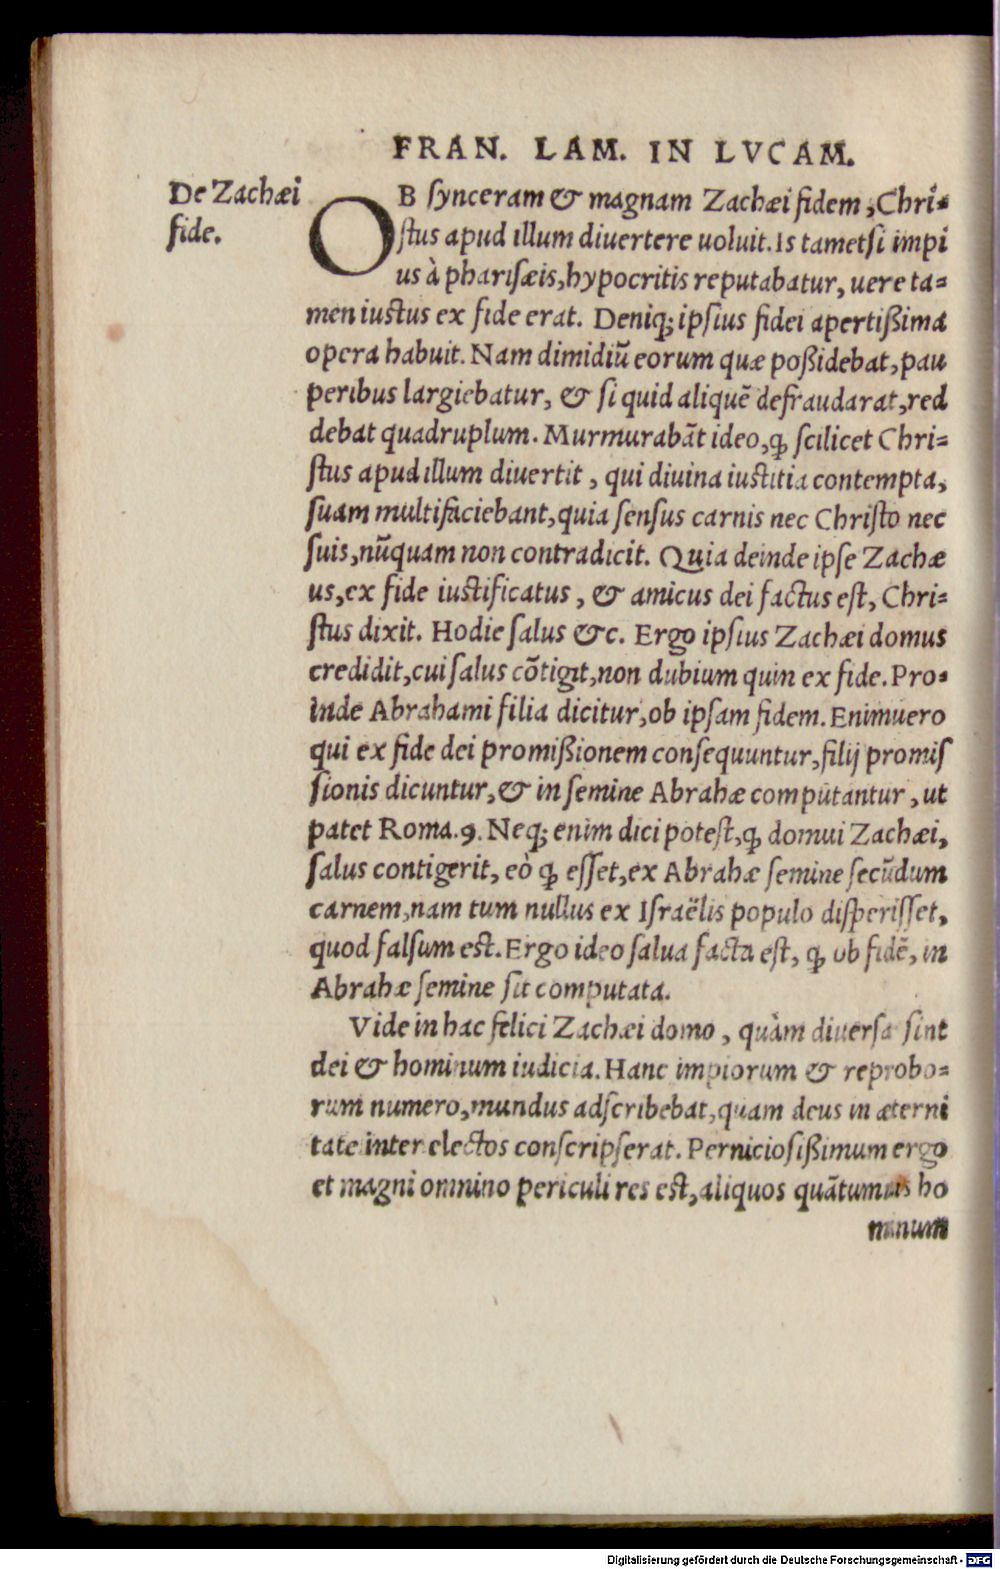 FRAN. LAM. IN LVCAM.
De Zachæi
fide.
OB synceram & magnam Zachæi fidem, Chri-
ſtus apud illum diuertere uoluit. Is tametſi impi
us à phariſæis, hypocritis reputabatur, uere ta=
men iuſtus ex fide erat. Deniq; ipſius fidei apertißima
opera habuit. Nam dimidiũ eorum quæ poßidebat, pau
peribus largiebatur, & ſi quid aliquẽ defraudarat, red
debat quadruplum. Murmurabãt ideo, ꝙ ſcilicet Chri=
ſtus apud illum diuertit, qui diuina iuſtitia contempta,
ſuam multifaciebant, quia ſenſus carnis nec Chriſto nec
ſuis, nũquam non contradicit. Quia deinde ipſe Zachæ
us, ex fide iuſtificatus, & amicus dei factus eſt, Chri=
ſtus dixit. Hodie ſalus &c. Ergo ipſius Zachæi domus
credidit, cui ſalus cõtigit, non dubium quin ex fide. Pro-
inde Abrahami filia dicitur, ob ipſam fidem. Enimuero
qui ex fide dei promißionem conſequuntur, filij promiſ
ſionis dicuntur, & in ſemine Abrahæ computantur, ut
patet Roma. 9. Neq; enim dici poteſt, ꝙ domui Zachæi,
ſalus contigerit, eò ꝙ eſſet, ex Abrahæ ſemine ſecũdum
carnem, nam tum nullus ex Iſraëlis populo diſperiſſet,
quod falſum eſt. Ergo ideo ſalua facta eſt, ꝙ ob fidẽ, in
Abrahæ ſemine ſit computata.
Vide in hac felici Zachæi domo, quàm diuerſa ſint
dei & hominum iudicia. Hanc impiorum & reprobo=
rum numero, mundus adſcribebat, quam deus in æterni
tate inter electos conſcripſerat. Pernicioſißimum ergo
et magni omnino periculi res eſt, aliquos quãtumuis ho
minum
Digitalisierung gefördert durch die Deutsche Forschungsgemeinschaft - DFG